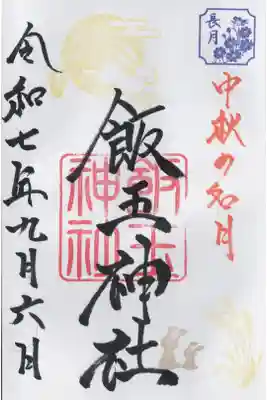 長月
中秋の名月
飯玉神社
飯玉神社
令和七年九月六日